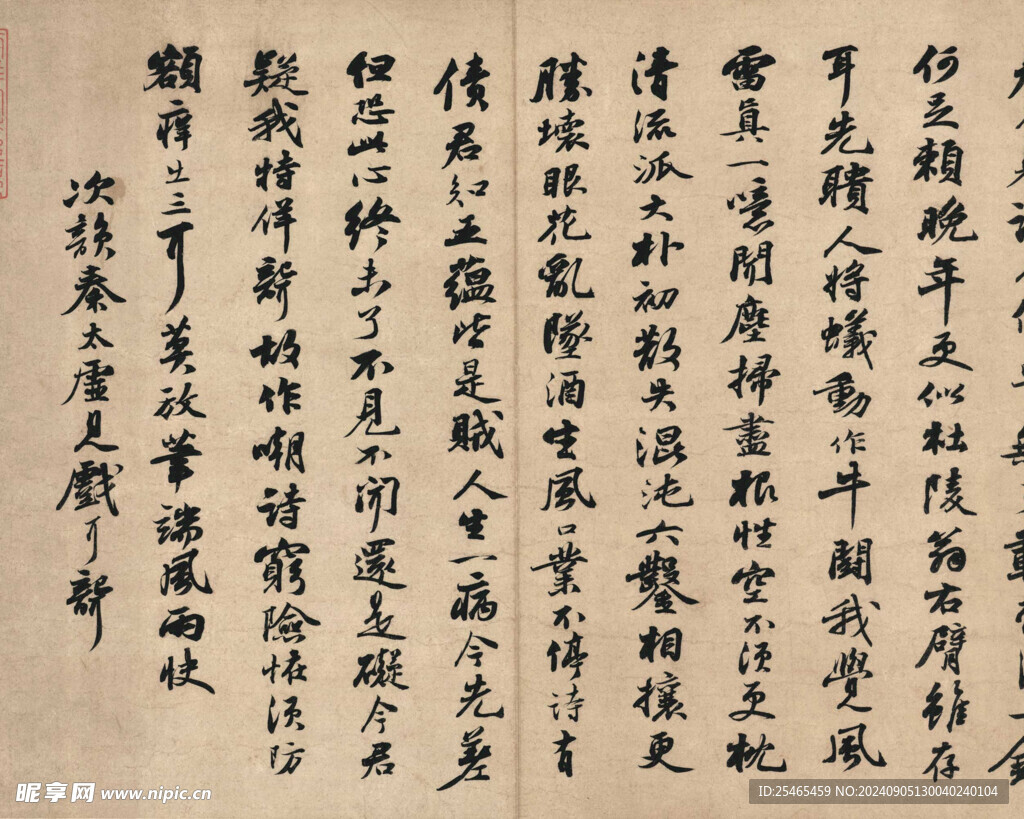 何足賴晚年更似杜陵翁右臂雖存
耳先聵人將蟻動作牛鬪我覺風
雷真一噫聞塵掃盡根性空不須更枕
清流派大朴初散失混沌六鑿相攘更
勝壞眼花亂墜酒生風口業不停詩有
債君知五蘊皆是賊人生一病今先差
但恐此心終未了不見不聞還是礙今君
疑我特佯聾故作嘲詩窮險怪須防
額痒出三耳莫放筆端風雨快
次韻秦太虛見戲耳聾
昵享网 www.nipic.cn
ID:25465459 NO:20240905130040240104